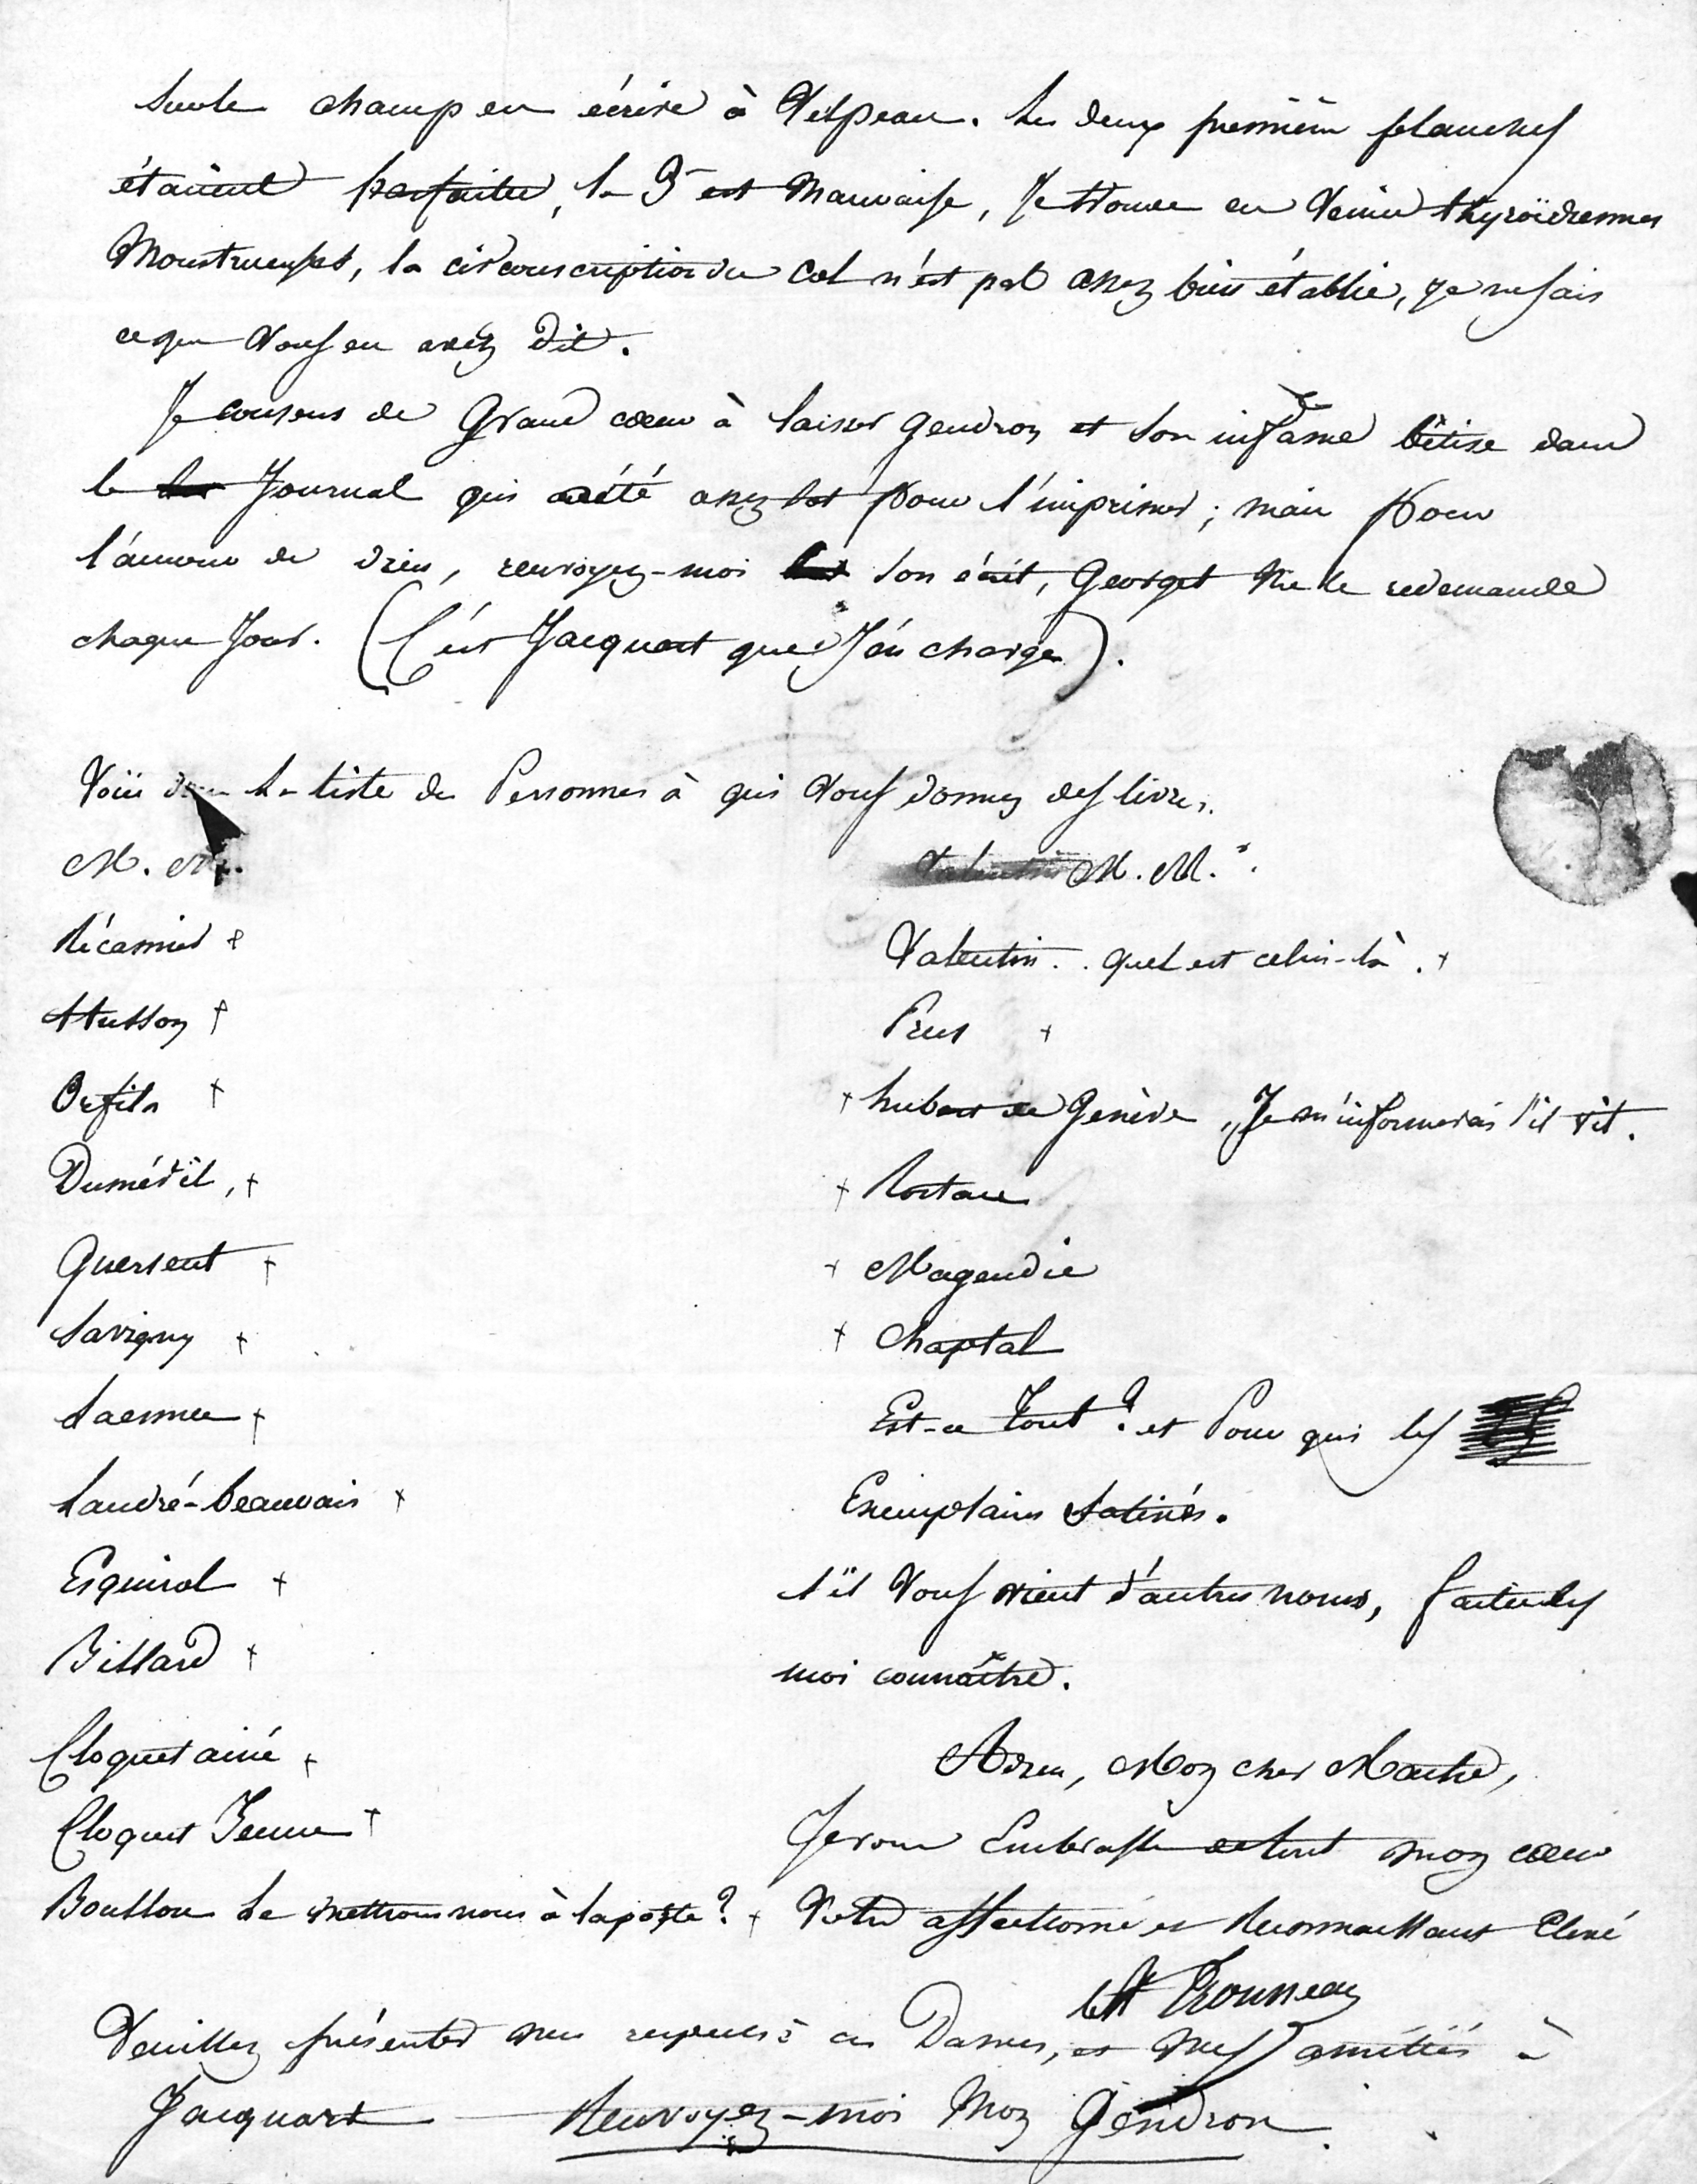 sur le champ en écrire à Velpeau. Les deux premières planches
étaient parfaites, la 3e est mauvaise, Je trouve en veines thyroïdiennes
Monstrueuses, la circonscription du Col n'est pas assez bien établie, je ne sais
ce que Vous en avez Dit.
Je consens de Grand cœur à laisser Gendron et son infame bêtise dans
le Journal qui a été assez sot Pour l'imprimer ; mais Pour
l'amour de dieu, renvoyez-moi son écrit, Georget me le redemande
chaque Jour. (C'est Jacquart que J'en charge).
Voici La liste des Personnes à qui Vous donnez des livres.
M. M.
Récamier +
Husson +
Orfila +
Duméril, +
Guersent +
Savigny +
Laennec +
Landré-beauvais +
Esquirol +
Billard +
Cloquet ainé +
Cloquet Jeune +
Boullon Le mettrons nous à la poste ? +
Valentin M. M.rs
Valentin .. quel est celui-là . +
Prus +
+ hubert de Genève, Je m'informerai s'il vit.
+ Rostan
+ Magendie
+ Chaptal
Est-ce Tout ? et Pour qui les
Exemplaires Satinés.
s'il Vous vient d'autres noms, faites les
moi connaître.
Adieu, Mon cher Maitre,
Je vous Embrasse de tout mon cœur
Votre affectionné et Reconnaissant Elevé
A Trousseau
Veuillez présenter mes respects à ces Dames, et mes amitiés à
Jacquart — Renvoyez-moi Mon Gendron.